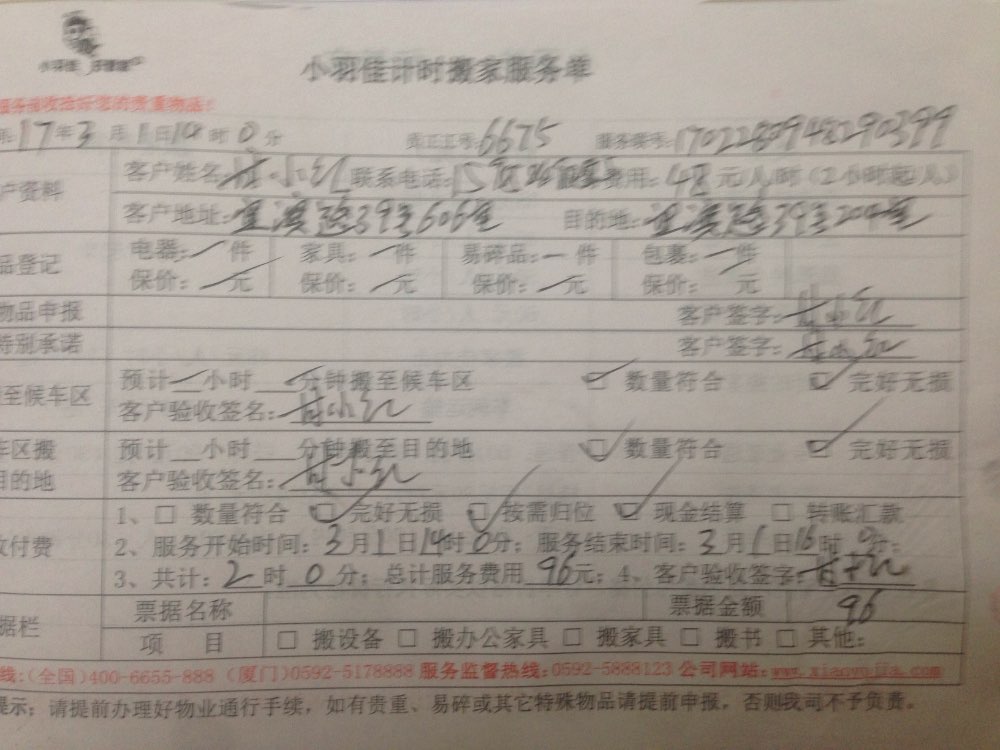 小羽佳计时搬家服务单
17年3月1日14时0分 员工工号:6675 服务票号:
户资料 客户姓名:甘小红 联系电话: 费用:48元/人/时(2小时起/人)
客户地址: 39号606室 目的地: 39号204室
品登记 电器:一件 家具:一件 易碎品:一件 包裹:一件
保价:一元 保价:一元 保价:一元 保价:一元
物品申报 客户签字:甘小红
特别承诺 客户签字:甘小红
至候车区 预计一小时 分钟搬至候车区 ☑ 数量符合 ☑ 完好无损
客户验收签名:甘小红
车区搬 预计 小时 分钟搬至目的地 ☑ 数量符合 ☑ 完好无损
目的地 客户验收签名:甘小红
付费 1、□ 数量符合 ☑ 完好无损 ☑ 按需归位 ☑ 现金结算 □ 转账汇款
2、服务开始时间:3月1日14时0分;服务结束时间:3月1日16时0分;
3、共计:2时0分;总计服务费用96元;4、客户验收签字:甘小红
据栏 票据名称 票据金额 96
项 目 □ 搬设备 □ 搬办公家具 □ 搬家具 □ 搬书 □ 其他:
线:(全国)400-6655-888 (厦门)0592-5178888 服务监督热线:0592-5888123 公司网站:www.xiaoyujia.com
提示:请提前办理好物业通行手续,如有贵重、易碎或其它特殊物品请提前申报,否则我司不予负责。